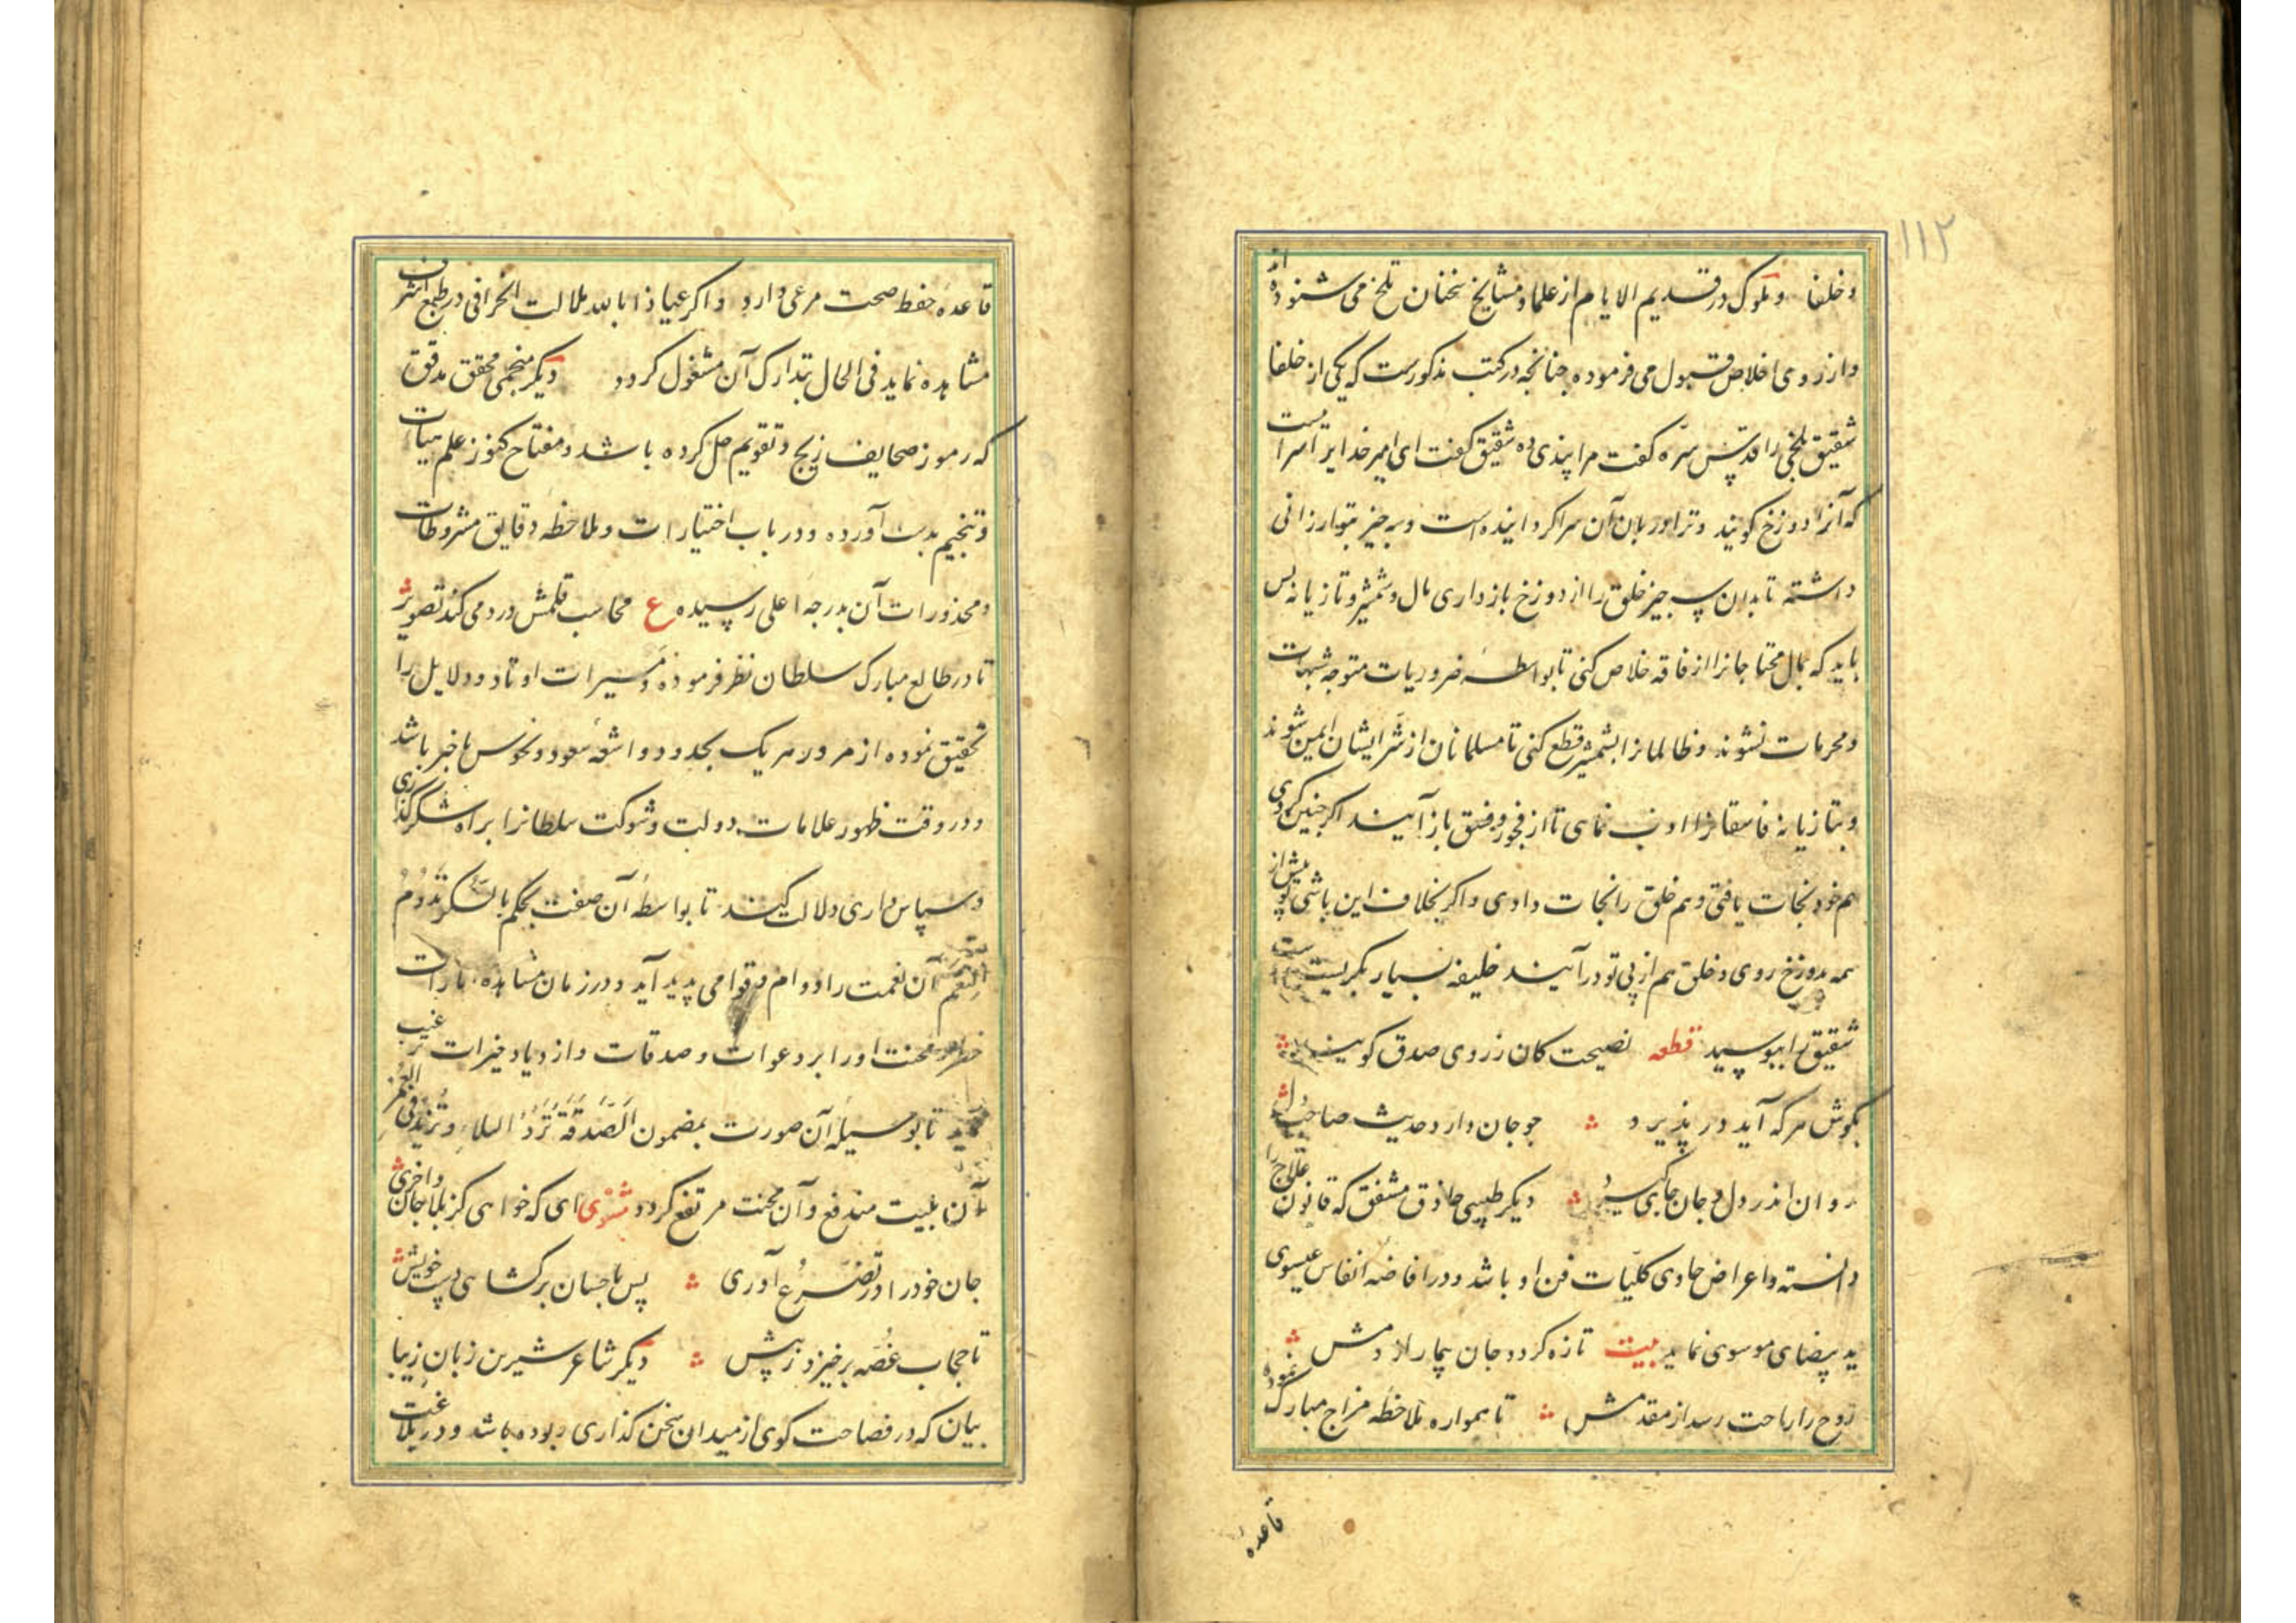 ۱۱۲
و خلفا و ملوک در قدیم الایام از علما و مشایخ سخنان تلخ می شنوده اند
و از روی اخلاص قبول می فرموده چنانچه در کتب مذکورست که یکی از خلفا
شقیق بلخی را قدس سره گفت مرا پندی ده شقیق گفت ای امیر خدایرا سرائیست
که آنرا دوزخ گویند و ترا دربان آن سرا گردانیده است و سه چیز بتو ارزانی
داشته تا بدان سه چیز خلق را از دوزخ بازداری مال و شمشیر و تازیانه پس
باید که بمال محتاجانرا از فاقه خلاص کنی تا بواسطه ضروریات متوجه شبهات
و محرمات نشوند و ظالمانرا بشمشیر قطع کنی تا مسلمانان از شر ایشان ایمن شوند
و بتازیانه فاسقانرا ادب نمای تا از فجور و فسق باز آیند اگر چنین کردی
هم خود نجات یافتی و هم خلق را نجات دادی و اگر بخلاف این باشی تو پیش از
همه بدوزخ روی و خلق هم از پی تو درآیند خلیفه بسیار بگریست
شقیق را ببوسید قطعه نصیحت کان ز روی صدق گویند
بگوش هر که آید در پذیرد چو جان دارد حدیث صاحب دل
روان اندر دل و جان جای گیرد دیگر طبیبی حاذق مشفق که قانون علاج را
دانسته و اعراض حاوی کلیات فن او باشد و در افاضه انفاس عیسوی
ید بیضای موسوی نماید بیت تازه گردد جان بیمار از دمش
روح را راحت رسد از مقدمش تا همواره ملاحظه مزاج مبارک نموده
قاعده
قاعده حفظ صحت مرعی دارد و اگر عیاذا بالله ملالت انحرافی در طبع اشرف
مشاهده نماید فی الحال بتدارک آن مشغول گردد دیگر منجمی محقق مدقق
که رموز صحایف زیج و تقویم حل کرده باشد و مفتاح کنوز علم هیأت
و تنجیم بدست آورده و در باب اختیارات و ملاحظه دقایق مشروطات
و محذورات آن بدرجه اعلی رسیده ع محاسب قلمش درد می کند تصویر
تا در طالع مبارک سلطان نظر فرموده و تسییرات اوتاد و دلایل را
تحقیق نموده از مرور هر یک بحدود و اشعه سعود و نحوس باخبر باشد
و در وقت ظهور علامات دولت و شوکت سلطانرا براه شکرگذاری
و سپاس داری دلالت کند تا بواسطه آن صفت بحکم بالشکر تدوم
النعم آن نعمت را دوام و قوامی پدید آید و در زمان مشاهده امارات
محنت او را بر دعوات و صدقات و ازدیاد خیرات ترغیب
تا بوسیله آن صورت بمضمون الصدقة ترد البلاء وتزید فی العمر
آن بلیت مندفع و آن محنت مرتفع گردد مثنوی ای که خواهی کز بلا جان واخری
جان خود را در تضرع آوری پس باحسان برگشا هی دست خویش
تا حجاب غصه برخیزد ز پیش دیگر شاعر شیرین زبان زیبا
بیان که در فصاحت گوی از میدان سخن گذاری ربوده باشد و در بلاغت